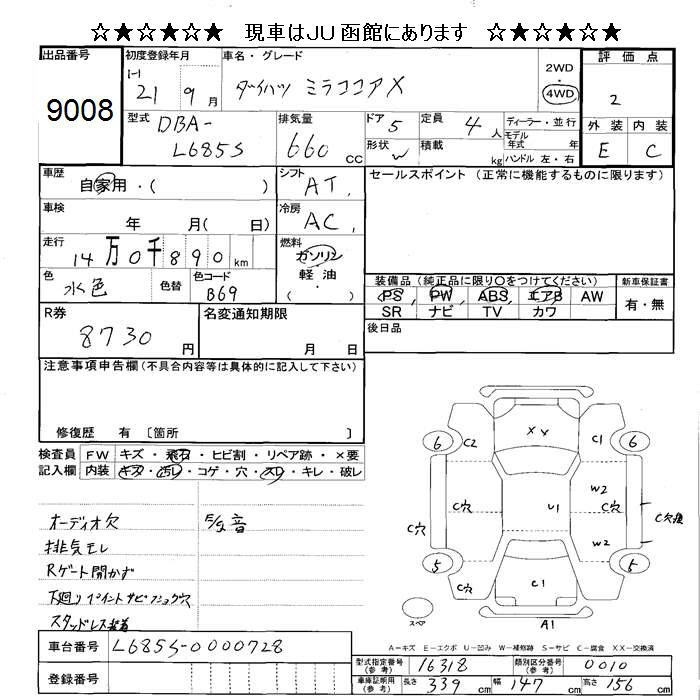 ☆★☆★☆★ 現車はJU函館にあります ☆★☆★☆★
出品番号 初度登録年月 車名・グレード 評価点
9008
H 21 9月 ダイハツ ミラココアX 2WD 4WD 2
型式 排気量 ドア 5 定員 4人 ディーラー・並行 外装 内装
DBA-L685S 660cc 形状 W 積載 kg モデル年式 年 ハンドル 左・右 E C
車歴 自家用・( ) シフト AT セールスポイント (正常に機能するものに限ります)
車検 年 月( 日) 冷房 AC
走行 14万0千890km 燃料 ガソリン 軽油 ( )
色 水色 色替 色コード B69
装備品 (純正品に限り〇をつけてください) 新車保証書
PS PW ABS エアB AW 有・無
SR ナビ TV カワ
R券 8730円 名変通知期限 月 日 後日品
注意事項申告欄(不具合内容等は具体的に記入して下さい)
修復歴 有 〔箇所 〕
検査員 FW キズ・飛石・ヒビ割・リペア跡・×要
記入欄 内装 キズ・汚レ・コゲ・穴・スレ・キレ・破レ
オーディオ欠 音
排気モレ
Rゲート開かず
下廻りペイントサビ
スタッドレス装着
6 C2 XX C1 6
C穴 C穴 U1 W2 C穴 C欠損
W2
5 C穴 C1 C穴 5
スペア A1
A-キズ E-エクボ U-凹み W-補修跡 S-サビ C-腐食 XX-交換済
車台番号 L685S-0000728
登録番号
型式指定番号(参考) 16318 類別区分番号(参考) 0010
車庫証明用(参考) 長さ 339cm 幅 147cm 高さ 156cm